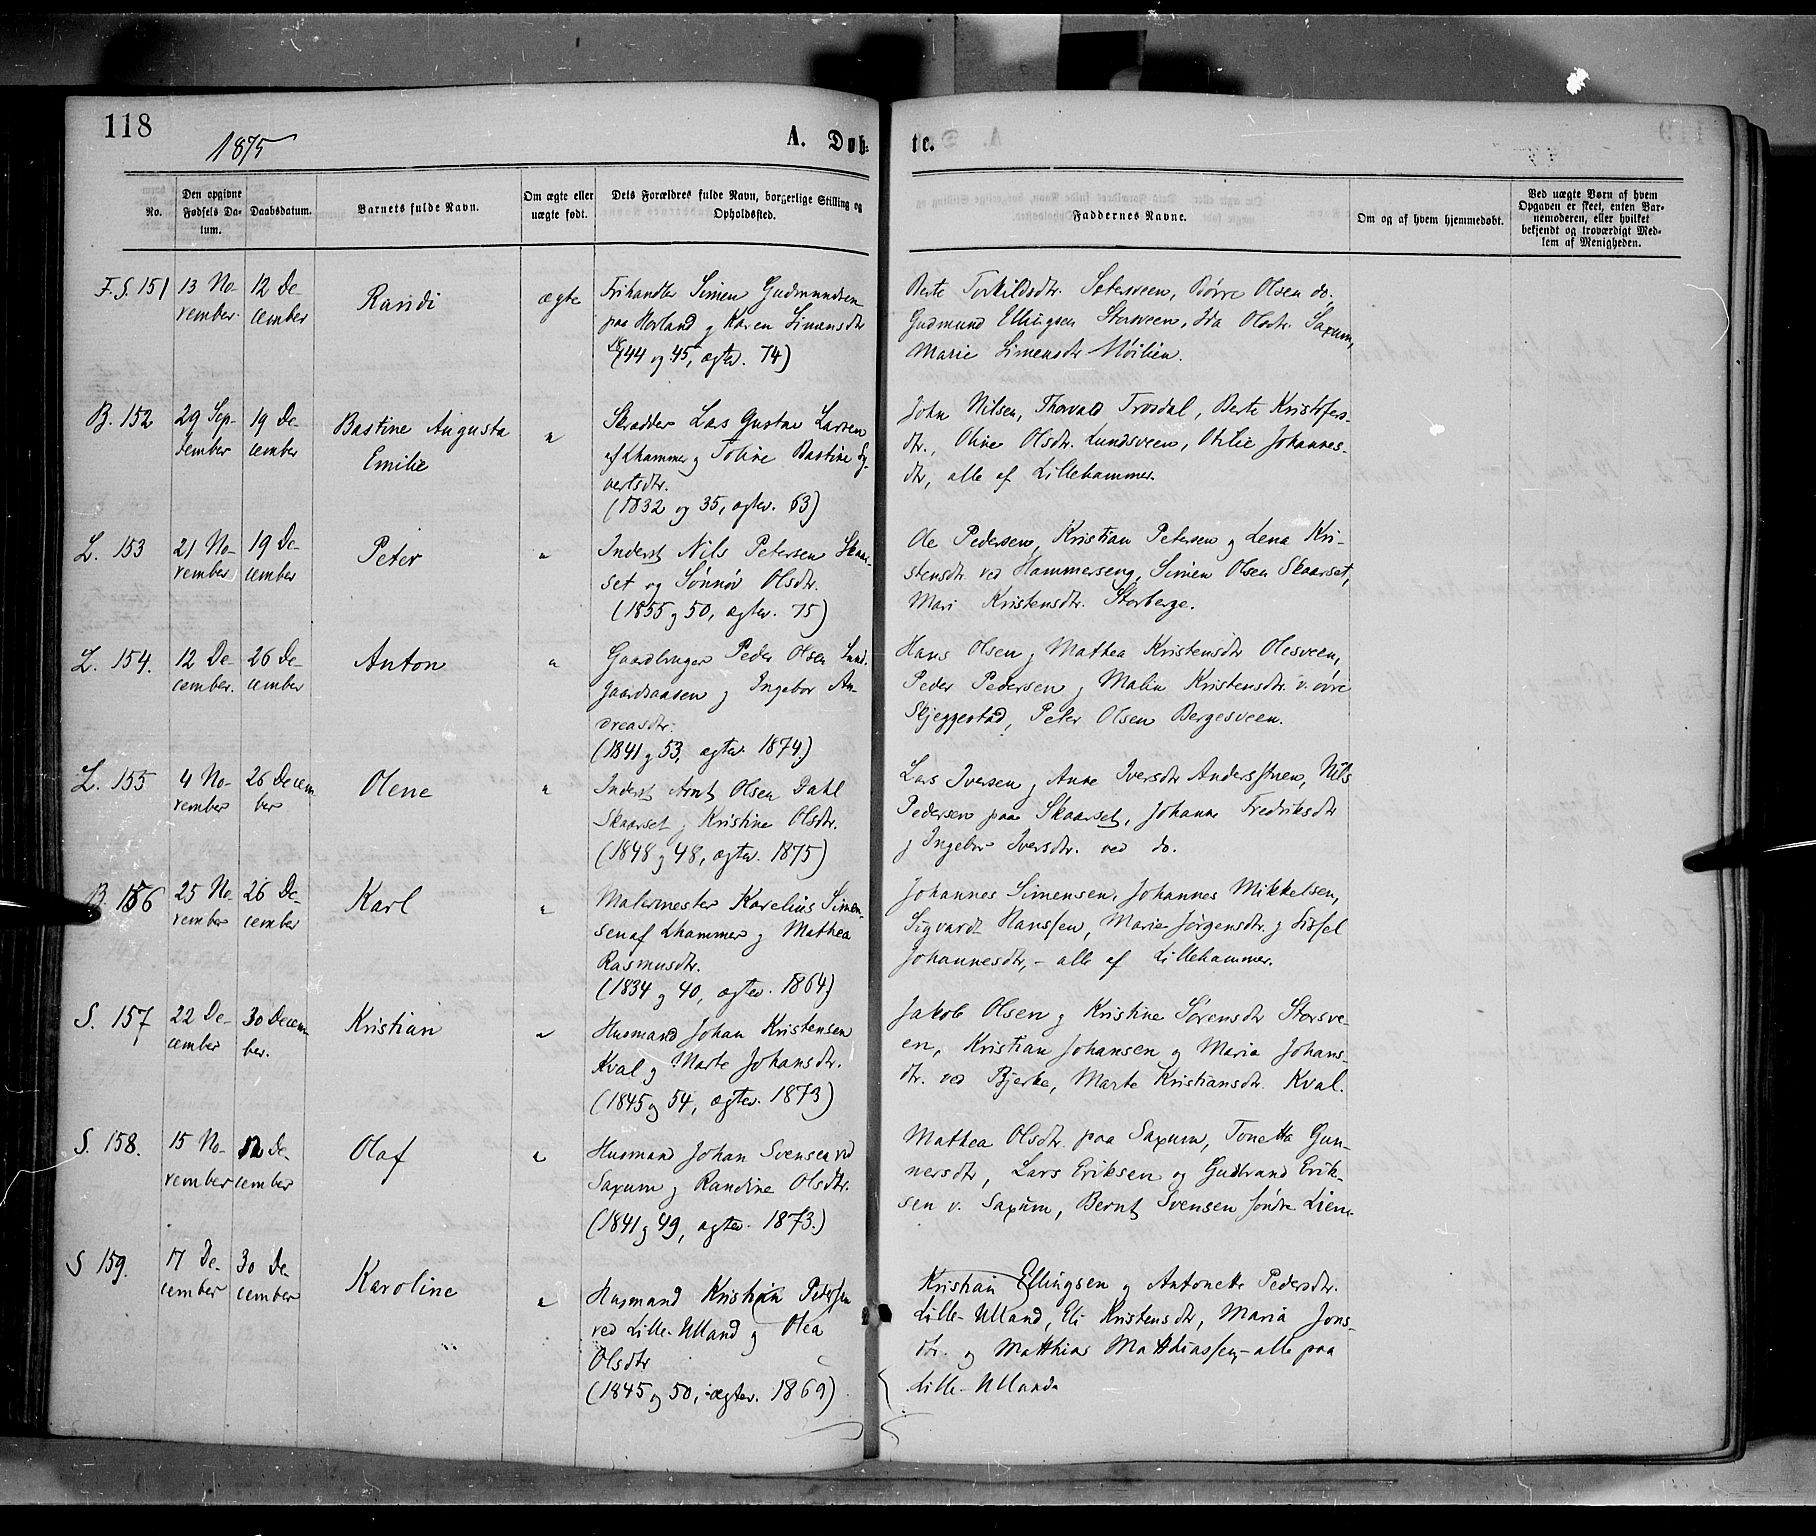 118
1875
A. Døb-
te.
No.
Den opgivne Fødsels Da-
tum.
Daabsdatum.
Barnets fulde Navn.
Om ægte eller
uægte født.
Dets Forældres fulde Navn, borgerlige Stilling og
Opholdssted.
Faddernes Navne.
Om og af hvem hjemmedøbt.
Ved uægte Børn af hvem
Opgaven er skeet, enten Bar-
nemoderen, eller hvilket
bekjendt og troværdigt Med-
lem af Menigheden.
F.S. 151
13 No-
vember
12 De-
cember
Randi
ægte
Frihandler Simen Gudmundsen
paa Horland g Karen Simensdtr
(44 og 45, ægtev. 74)
Berte Torkildsdtr. Sætersveen, Børre Olsen do,
Gudmund Ellingsen Storsveen, Ida Olsdtr. Saxum,
Marie Simensdtr Moilien.
B. 152
29 Sep-
tember
19 De-
cember
Bastine Augusta
Emilie
"
Skrædder Lars Gustav Larsen
af Lhammer g Toline Bastine Sy-
vertsdtr.
(1832 og 35, ægtev. 63)
John Nilsen, Thorvald Trosdal, Berte Kristofers-
dtr., Oline Olsdtr. Lundsveen, Otilie Johannes-
dtr, alle af Lillehammer.
L. 153
21 No-
vember
19 De-
cember
Peter
"
Inderst Nils Petersen Skaar-
set og Sønnøv Olsdtr.
(1855 g 50, ægtev. 75)
Ole Pedersen, Kristian Petersen g Lena Kri-
stensdtr. ved Hammerseng, Simen Olsen Skaarset,
Mari Kristensdtr. Storberge.
L. 154.
12 De-
cember.
26 De-
cember
Anton
"
Gaardbruger Peder Olsen Lund-
gaardsaasen g Ingebor An-
dreasdtr.
(1841 g 53, ægtev. 1874)
Hans Olsen g Mathea Kristensdtr Olesveen,
Peder Pedersen g Malin Kristensdtr. v. øvre
Skjeggestad, Peter Olsen Bergesveen.
L. 155
4 No-
vember
26 Decem-
ber
Olene
"
Inderst Arnt Olsen Dahl
Skaarset g Kristine Olsdtr.
(1848 g 48, ægtev. 1875)
Lars Iversen g Anne Iversdtr Andersstuen, Nils
Pedersen paa Skaarset, Johanne Fredriksdtr
g Ingebor Iversdtr. ved do.
B. 156
25 No-
vember
26 De-
cember
Karl
"
Malermester Karelius Simen-
sen af Lhammer g Mathea
Rasmusdtr.
(1834 g 40, ægtev. 1864)
Johannes Simensen, Johannes Mikkelsen,
Sigvardt Hanssen, Marie Jørgensdtr. g Sissel
Johannesdtr, - alle af Lillehammer.
S. 157
22 De-
cember
30 Decem-
ber.
Kristian
"
Husmand Johan Kristensen
Kval g Marte Johansdtr.
(1845 og 54, ægtev. 1873)
Jakob Olsen g Kristine Sørensdtr Storsve-
en, Kristian Johansen og Maria Johans-
dtr. ved Bjerke, Marte Kristiansdtr. Kval.
S. 158.
15 No-
vember
12 De-
cember
Olaf
"
Husmand Johan Svensen ved
Saxum g Randine Olsdtr.
(1841 g 49, ægtev. 1873.)
Mathea Olsdtr. paa Saxum, Tonetta Gun-
nersdtr, Lars Eriksen og Gudbrand Erik-
sen v. Saxum, Bernt Svensen søndre Lien.
S 159.
17 De-
cember
30 De-
cember
Karoline
"
Husmand Kristian Pedersen
ved Lille-Ulland g Olea
Olsdtr
(1845 og 50, ægtev. 1869)
Kristian Ellingsen og Antonette Pedersdtr.
Lille-Ulland, Eli Kristensdtr, Maria Jons-
dtr. og Matthias Matthiassen, - alle paa
Lille-Ulland